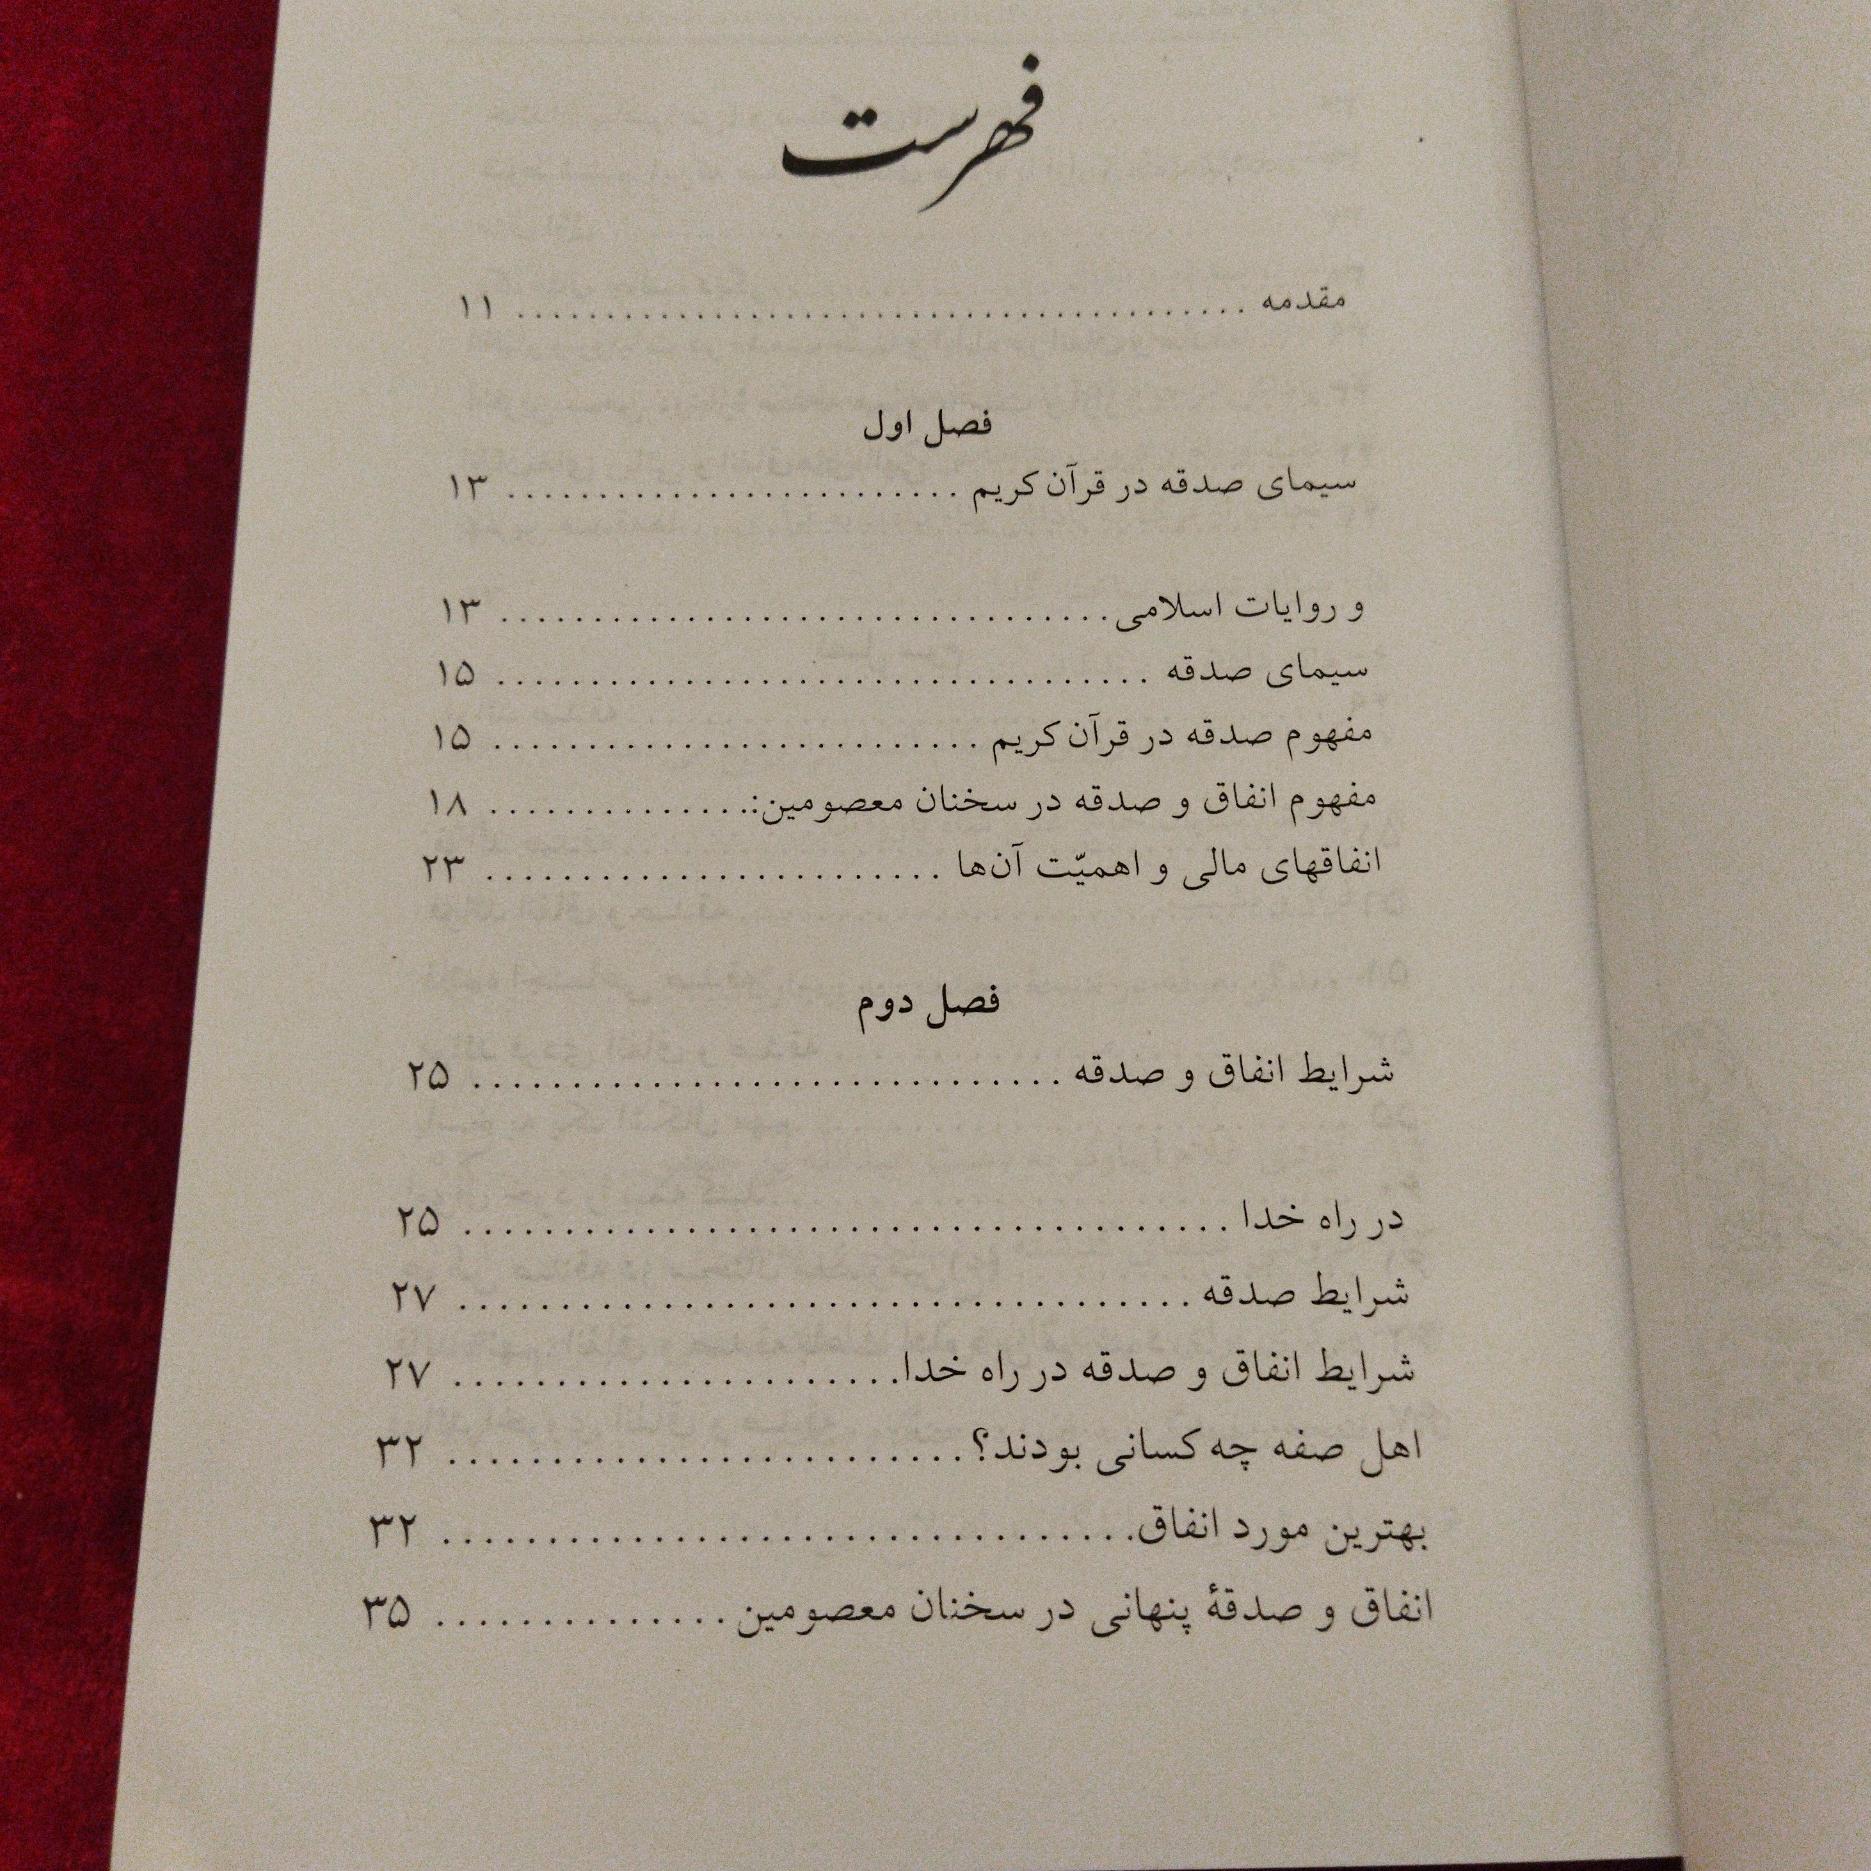 فهرست
مقدمه ........................................ ۱۱
فصل اول
سیمای صدقه در قرآن کریم ......................... ۱۳
و روایات اسلامی.................................. ۱۳
سیمای صدقه .................................... ۱۵
مفهوم صدقه در قرآن کریم ........................... ۱۵
مفهوم انفاق و صدقه در سخنان معصومین:............... ۱۸
انفاقهای مالی و اهمیّت آن‌ها ......................... ۲۳
فصل دوم
شرایط انفاق و صدقه .............................. ۲۵
در راه خدا ...................................... ۲۵
شرایط صدقه .................................... ۲۷
شرایط انفاق و صدقه در راه خدا...................... ۲۷
اهل صفه چه کسانی بودند؟ ......................... ۳۲
بهترین مورد انفاق.................................. ۳۲
انفاق و صدقهٔ پنهانی در سخنان معصومین .............. ۳۵